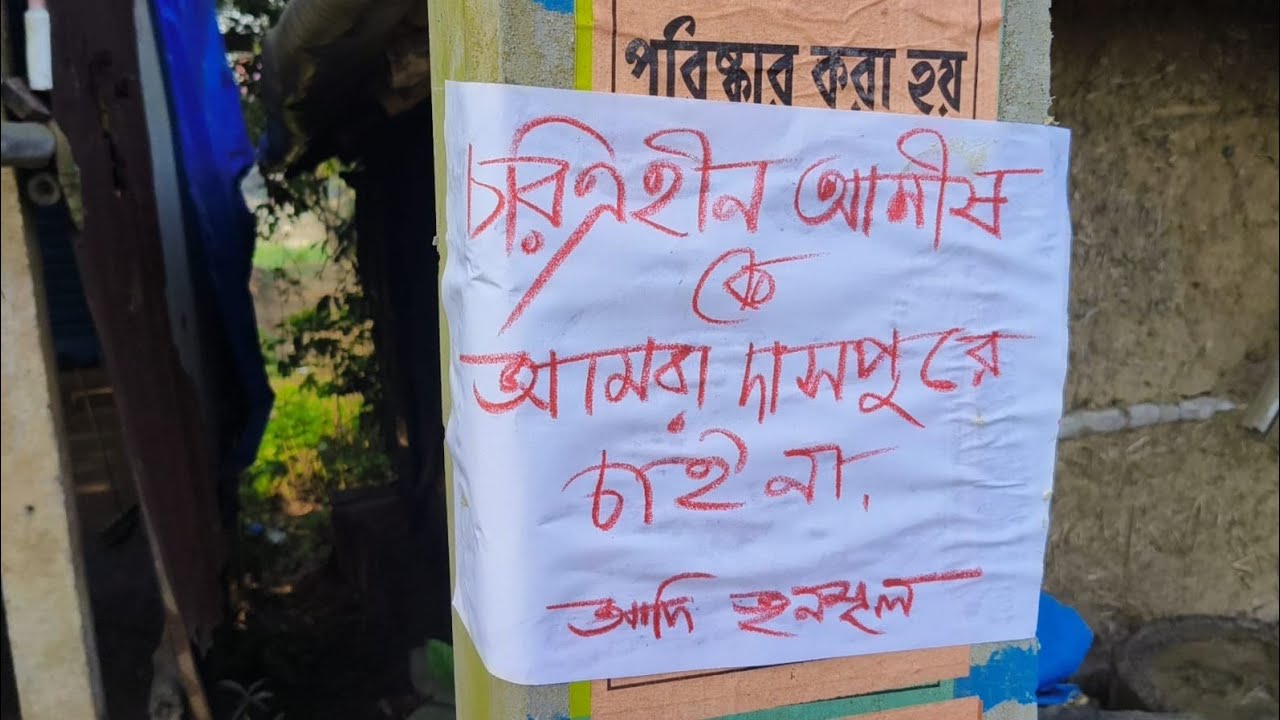 পরিষ্কার করা হয়
চরিত্রহীন আশীষ
কে
আমরা দাসপুরে
চাই না.
আদি তৃনমূল